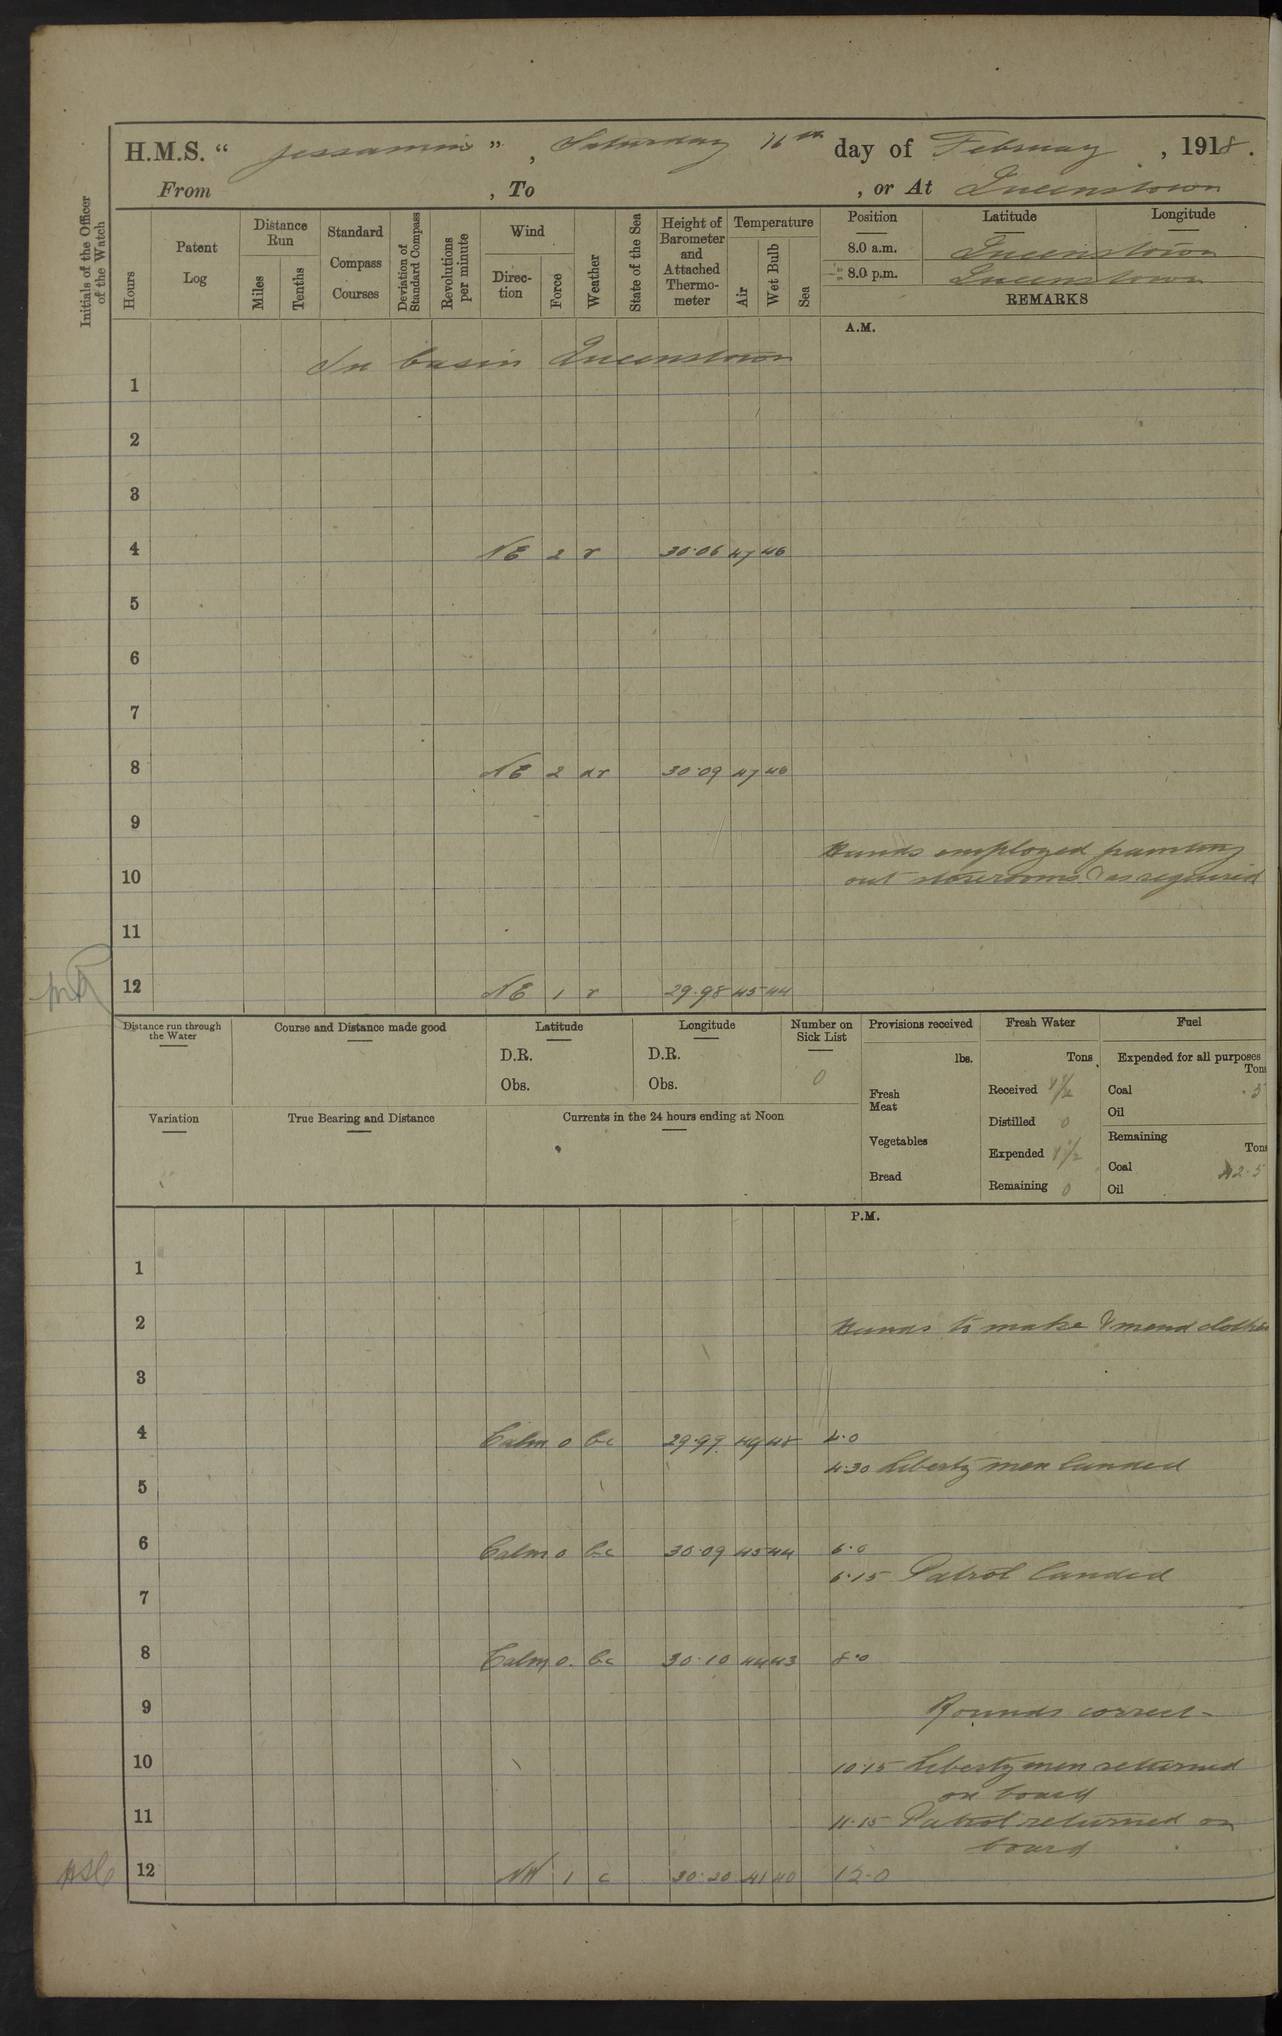 H.M.S. " Jessamine ", Saturday 16th day of February, 1918.
From , To , or At Queenstown
Initials of the Officer of the Watch
Hours
Patent Log
Distance Run
Miles
Tenths
Standard Compass Courses
Deviation of Standard Compass
Revolutions per minute
Wind
Direction
Force
Weather
State of the Sea
Height of Barometer and Attached Thermometer
Temperature
Air
Wet Bulb
Sea
Position Latitude Longitude
8.0 a.m. Queenstown
8.0 p.m. Queenstown
REMARKS
A.M.
In basin Queenstown
1
2
3
4 NE 2 r 30.06 47 46
5
6
7
8 NE 2 dr 30.09 47 46
9
Hands employed painting
10 out storerooms & as required
11
12 NE 1 r 29.98 45 44
Distance run through the Water
Course and Distance made good
Latitude
D.R.
Obs.
Longitude
D.R.
Obs.
Number on Sick List
0
Provisions received
lbs.
Fresh Meat
Vegetables
Bread
Fresh Water
Tons
Received
Distilled 0
Expended
Remaining 0
Fuel
Expended for all purposes
Tons
Coal .5
Oil
Remaining
Tons
Coal
Oil
Variation
True Bearing and Distance
Currents in the 24 hours ending at Noon
P.M.
1
2 Hands to make & mend clothes
3
4 Calm 0 bc 29.99 49 48 4.0
4.30 Liberty men landed
5
6 Calm 0 bc 30.09 45 44 6.0
6.15 Patrol landed
7
8 Calm 0. bc 30.10 44 43 8.0
9 Rounds correct-
10 10.15 Liberty men returned
on board
11 11.15 Patrol returned on
board
12 NW 1 c 30.20 41 40 12.0